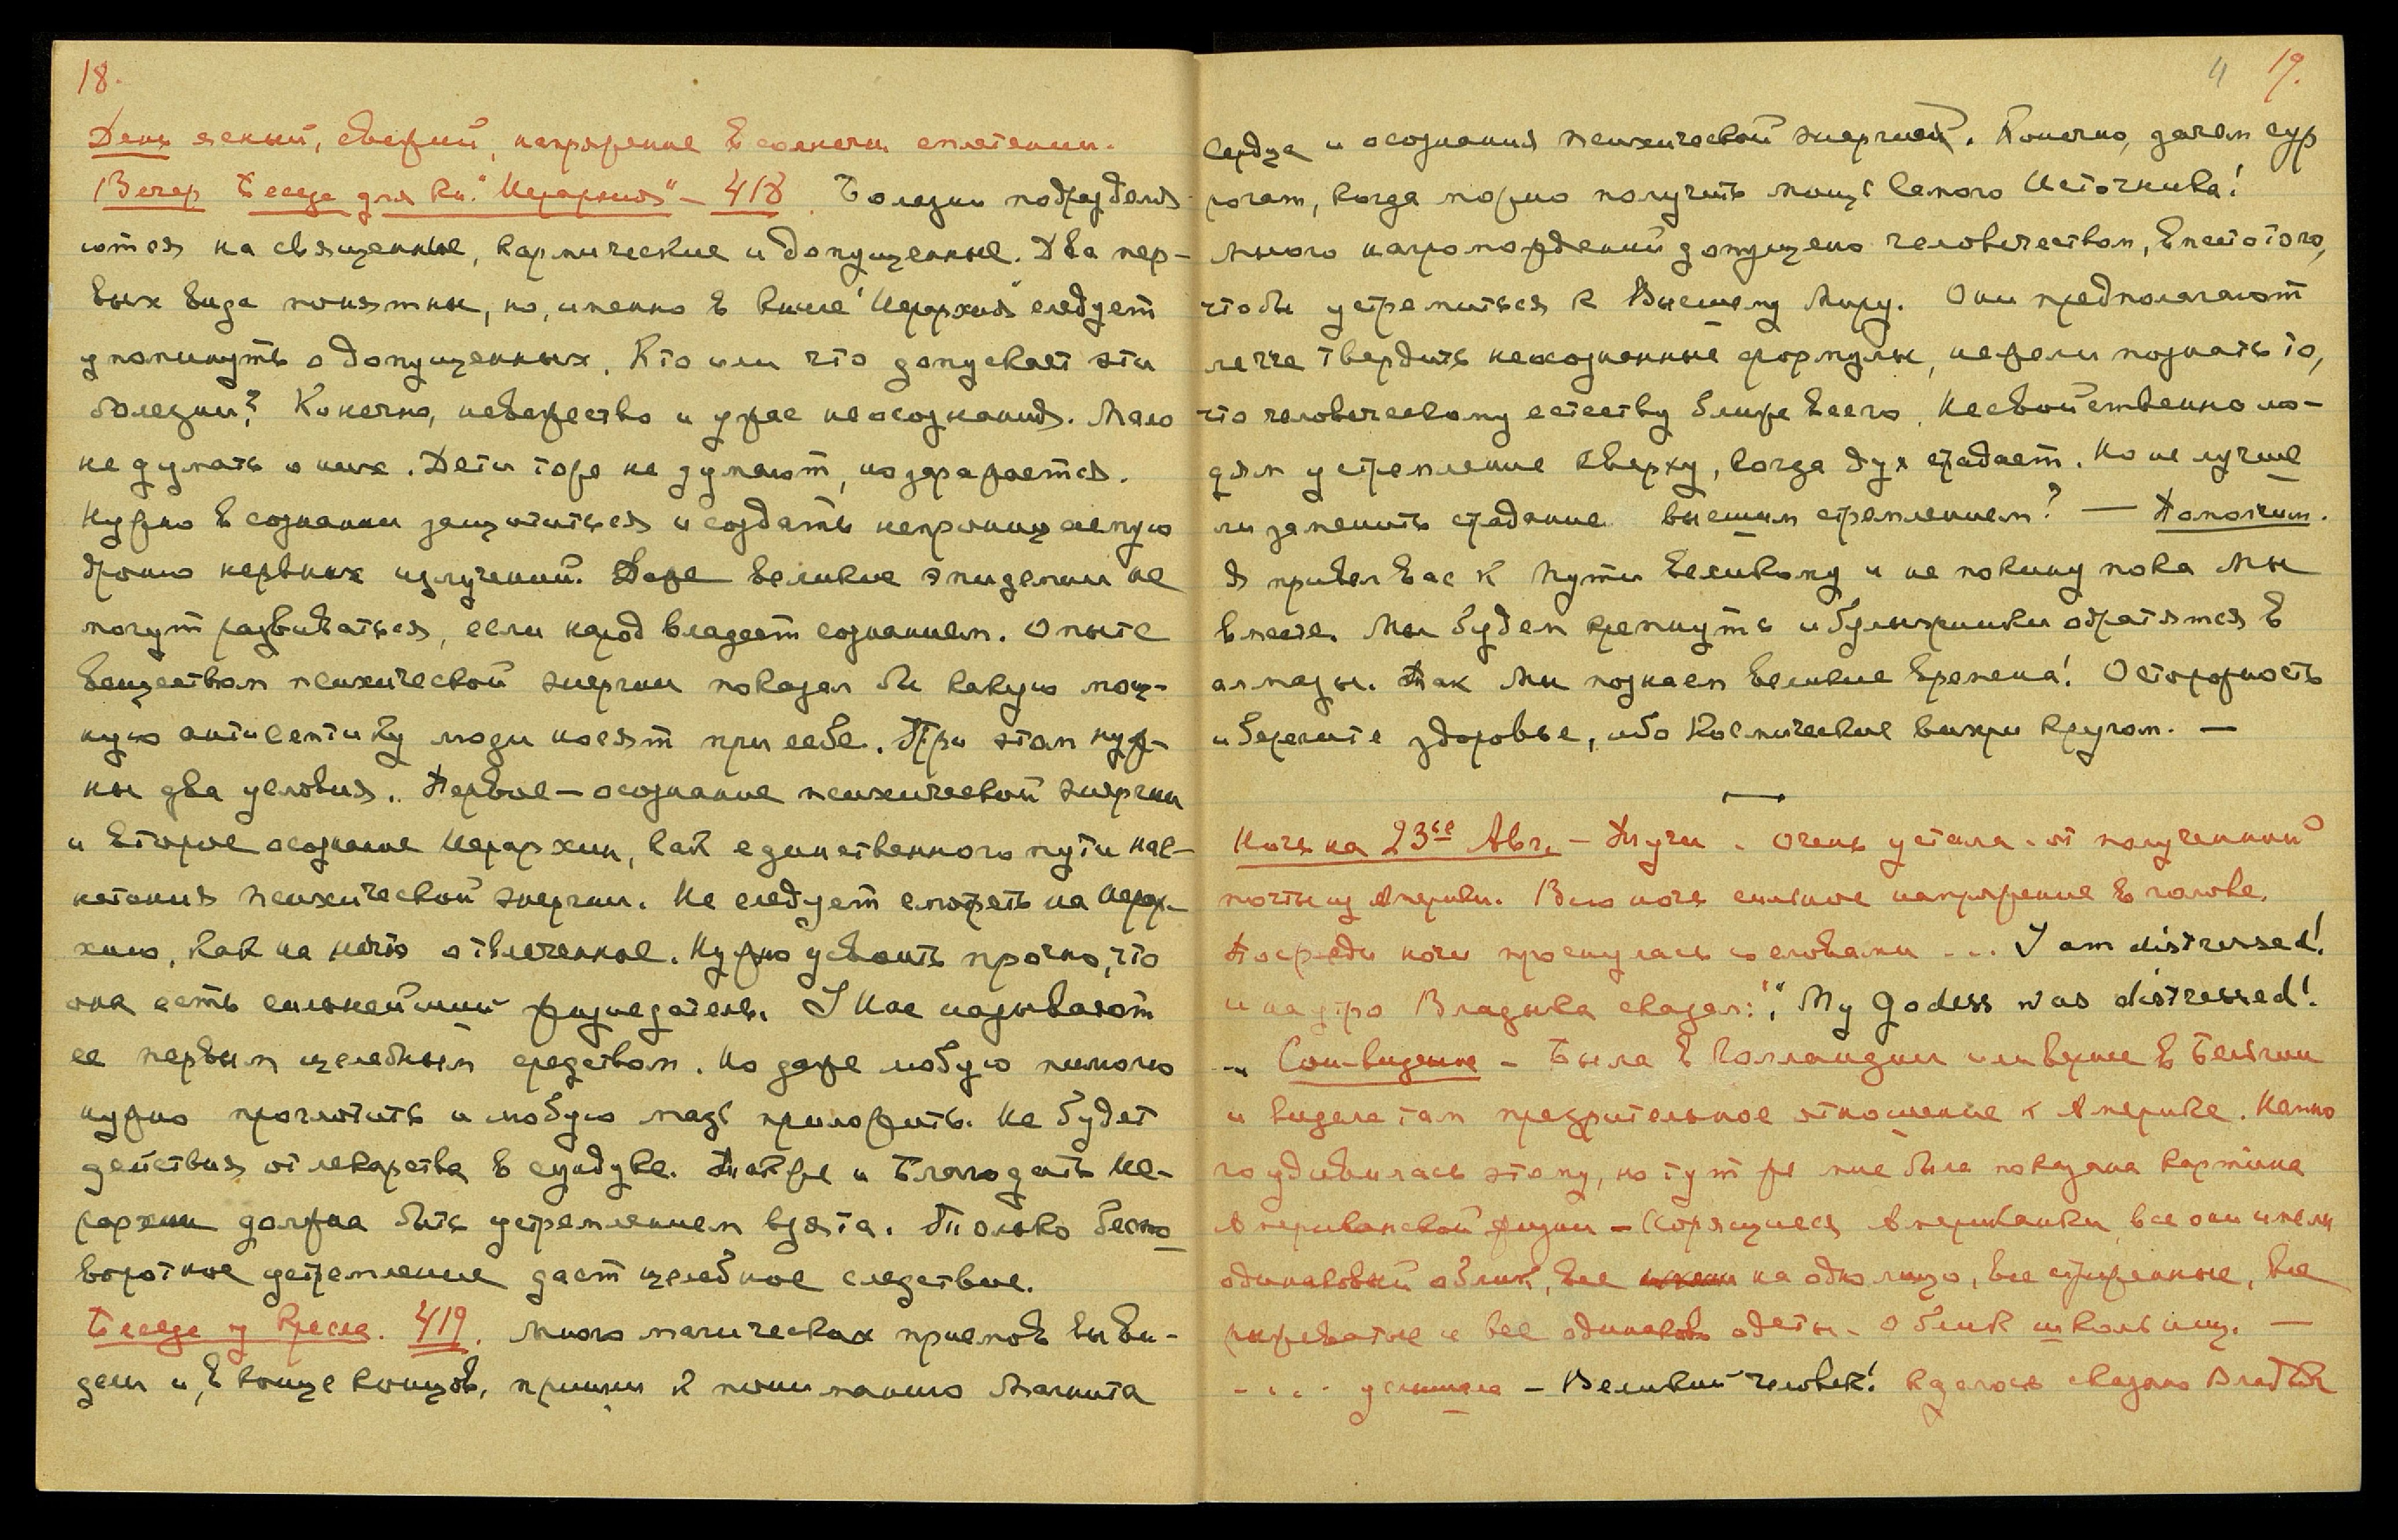 18.
День ясный, свежий, напряжение в солнечн. сплетении.
Вечер Беседа для кн. "Иерархия" – 418. Болезни подраздел­я-
ются на священные, кармические и допущенные. Два пер-
вых вида понятны, но, именно в книге "Иерархия" следует
упомянуть о допущенных. Кто или что допускает эти
болезни? Конечно, невежество и ужас неосознания. Мало
не думать о них. Дети тоже не думают, но заражаются.
Нужно в сознании защититься и создать непроницаемую
броню нервных излучений. Даже великие эпидемии не
могут развиваться, если народ владеет сознанием. Опыт с
веществом психической энергии показал бы какую мощ-
ную антисептику люди носят при себе. При этом нуж-
ны два условия. Первое – осознание психической энергии
и второе осознание Иерархии, как единственного пути наг-
нетания психической энергии. Не следует смотреть на Иерар-
хию, как на нечто отвлеченное. Нужно усвоить прочно, что
она есть сильнейший жизнедатель. У Нас называют
ее первым целебным средством. Но даже любую пилюлю
нужно проглотить и любую мазь приложить. Не будет
действия от лекарства в сундуке. Также и Благодать Ие-
рархии должна быть устремлением взята. Только беспо-
воротное устремление дает целебное следствие.
Беседа у Кресла. 419. Много магических приемов выви-
дели и, в конце концов, пришли к пониманию Магнита
4 19.
Сердца и осознания психической энергией. Конечно, зачем сур
рогат, когда можно получить мощь самого Источника!
Много нагромождений допущено человечеством, вместо того,
чтобы устремиться к Высшему Миру. Они предполагают
легче твердить неосознанные формулы, нежели познать то,
что человеческому естеству ближе всего. Несвойственно лю-
дям устремление кверху, когда дух страдает. Но не лучше
ли заменить страдание высшим стремлением? — Помолчим.
Я привел вас к Пути Великому и не покину пока Мы
вместе. Мы будем крепнуть и булыжники обратятся в
алмазы. Так Мы познаем Великие Времена! Осторожность
и берегите здоровье, ибо Космические вихри кругом. —
Ночь на 23ье Авг. – Лучи. Очень устала от полученной
почты из Америки. Всю ночь сильное напряжение в голове.
Посреди ночи проснулась со словами ... I am distressed!
и на утро Владыка сказал: "My Godess was distressed!
.. Сон-видение – Была в Голландии или вернее в Бельгии
и видела там презрительное отношение к Америке. Немно
го удивилась этому, но тут же мне была показана картина
Американской жизни – Американки, все они имели
одинаковый облик, все на одно лицо, все стриженные, все
рыжеватые и все одинаково одеты – облик школьниц. —
.... услышала – Великий человек! Казалось сказано Влад­ыкой